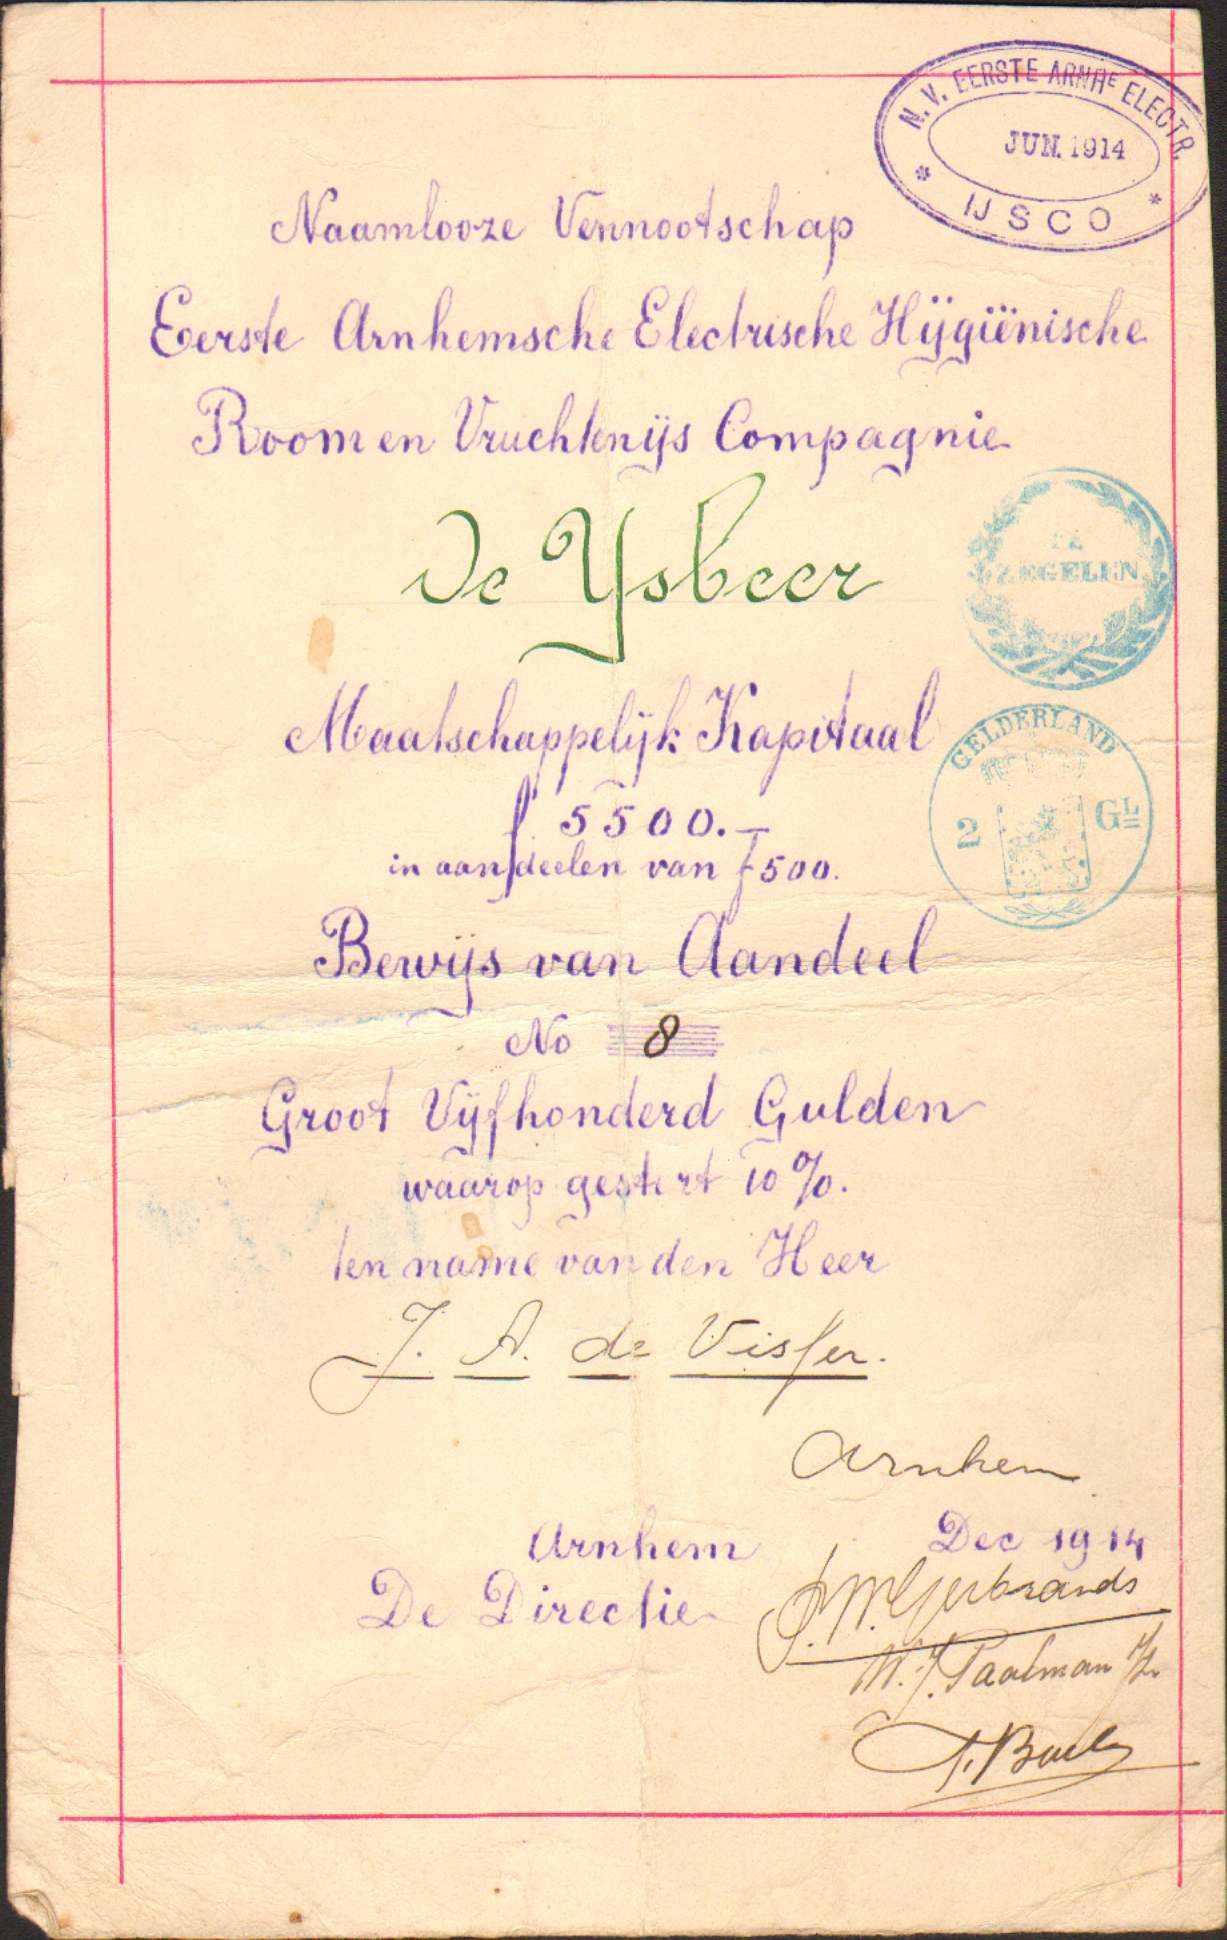 N.V. EERSTE ARNHE ELECTR.
JUN. 1914
* IJSCO *
Naamlooze Vennootschap
Eerste Arnhemsche Electrische Hÿgiënische
Room en Vruchtenijs Compagnie
De Ysbeer
TE
ZEGELEN
Maatschappelijk Kapitaal
GELDERLAND
2 GL
f 5500.-
in aandeelen van f 500.
Bewijs van Aandeel
No 8
Groot Vijfhonderd Gulden
waarop gestort 10%.
ten name van den Heer
J. A. de Visser.
Arnhem
Arnhem Dec 1914
De Directie
W. Gerbrands
W. J. Paalman Jr.